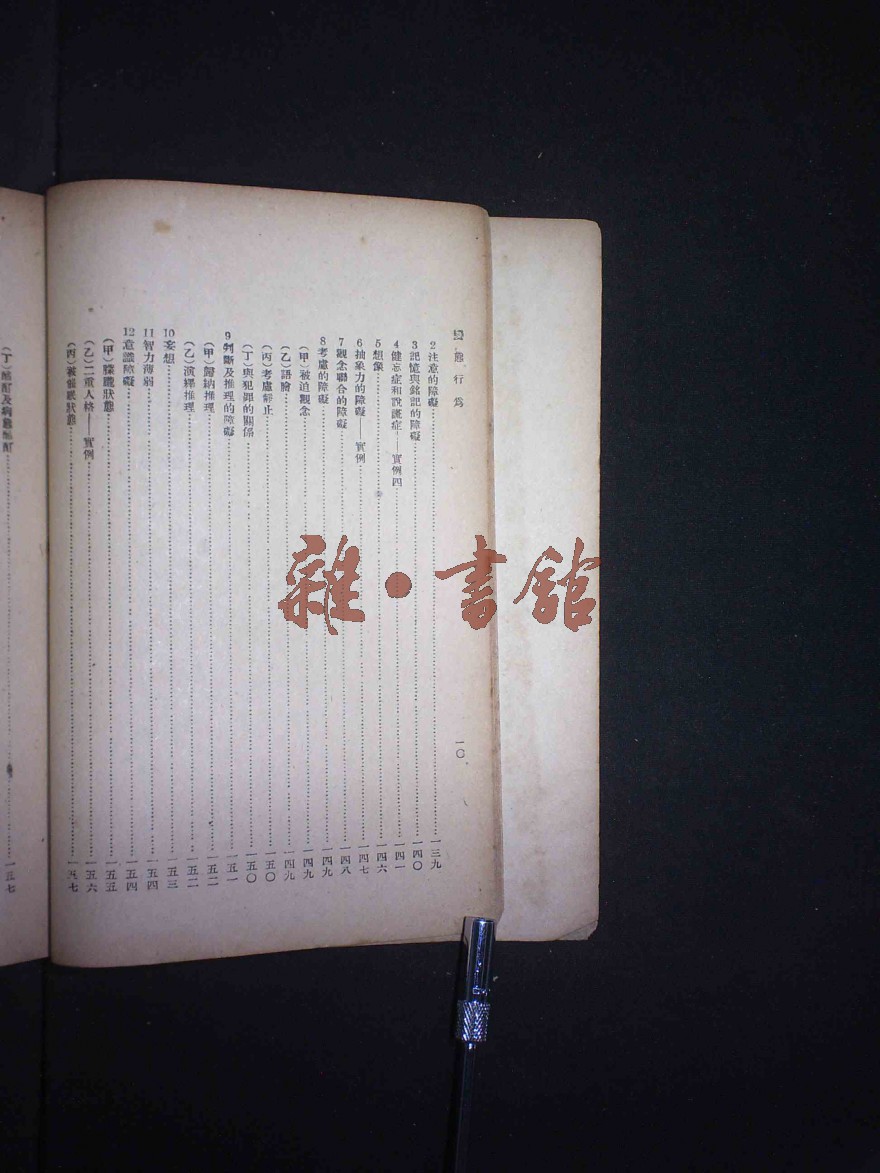 變態行為
一〇
2 注意的障礙……一三九
3 記憶與銘記的障礙……一四〇
4 健忘症和說謊症——實例四……一四一
5 想像……一四六
6 抽象力的障礙——實例……一四七
7 觀念聯合的障礙……一四八
8 考慮的障礙……一四九
(甲)被迫觀念……一四九
(乙)語譫……一四九
(丙)考慮靜止……一五〇
(丁)與犯罪的關係……一五〇
9 判斷及推理的障礙……一五一
(甲)歸納推理……一五二
(乙)演繹推理……一五二
10 妄想……一五三
11 智力薄弱……一五四
12 意識障礙……一五四
(甲)朦朧狀態……一五五
(乙)二重人格——實例……一五六
(丙)被催眠狀態……一五七
(丁)酩酊及病態酩酊……一五七
雜·書館